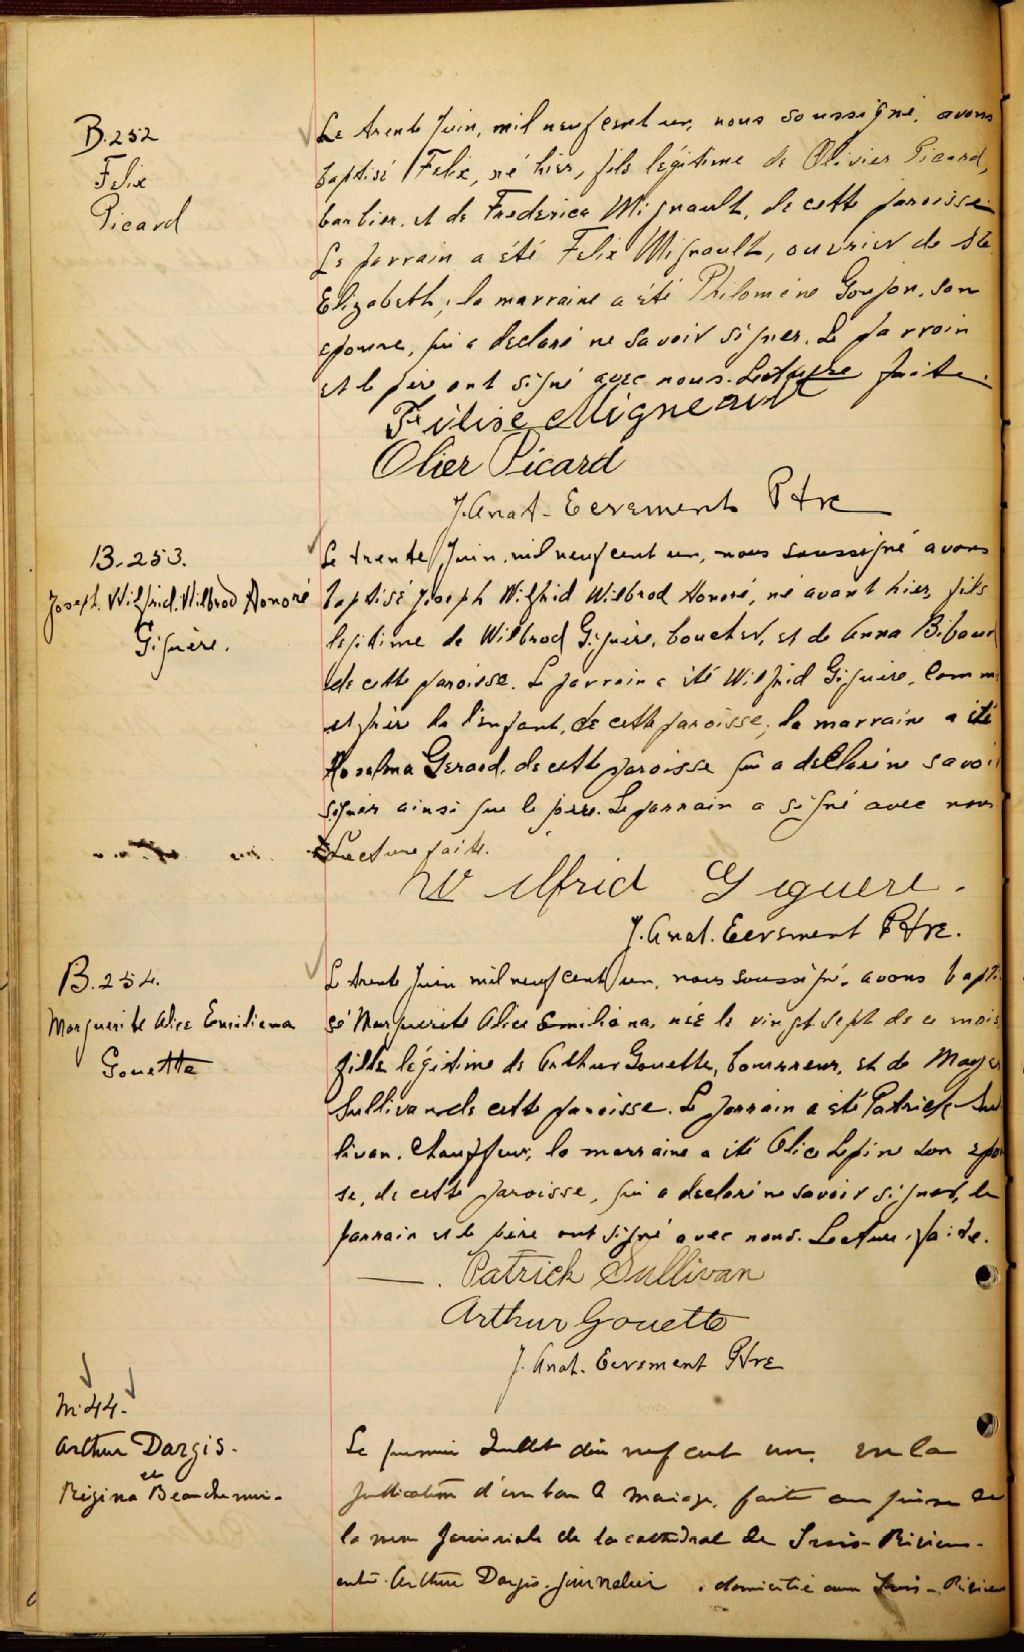 B.252
Felix
Picard
Le trente Juin, mil neuf cent un, nous soussigné, avons
baptisé Felix, né hier, fils légitime de Olivier Picard,
barbier, et de Frederica Mignault, de cette paroisse
Le parrain a été Felix Mignault, ouvrier de Ste
Elizabeth; la marraine a été Philomène Goujon, son
epouse, qui a declaré ne savoir signer. Le parrain
et le père ont signé avec nous. Lecture faite.
Félise Migneault
Olier Picard
J. Anat. Ptre
B.253.
Joseph. Wilfrid. Wilbrod Honoré
Giguère.
Le trente Juin, mil neuf cent un, nous soussigné avons
baptisé Joseph Wilfrid Wilbrod Honoré, né avant hier, fils
legitime de Wilbrod Giguère, boucher, et de Anna
de cette paroisse. Le parrain a été Wilfrid Giguère,
et frère de l'enfant, de cette paroisse, la marraine a été
Gerard, de cette paroisse qui a declaré ne savoir
signer ainsi que le père. Le parrain a signé avec nous
Lecture faite.
Wilfrid Giguere.
J. Anat. Ptre.
B.254.
Marguerite Alice Emiliana
Gouette
Le trente Juin mil neuf cent un, nous soussigné, avons bapti
sé Marguerite Alice Emiliana, née le vingt sept de ce mois,
fille légitime de Arthur Gouette, bourreur, et de
Sullivan de cette paroisse. Le parrain a été Patrick Sul
livan. Chauffeur, la marraine a été Alice Lepine son epou
se, de cette paroisse, qui a declaré ne savoir signer, le
parrain et le père ont signé avec nous. Lecture faite.
Patrick Sullivan
Arthur Gouette
J. Anat. Ptre
M.44.
Arthur Dargis.
et
Régina
Le premier Juillet dix neuf cent un, vu la
publication d'un ban de mariage, faite au prône de
la messe paroissiale de la cathédrale de Trois-Rivières.
entre Arthur Dargis. journalier, domicilié aux Trois-Rivières